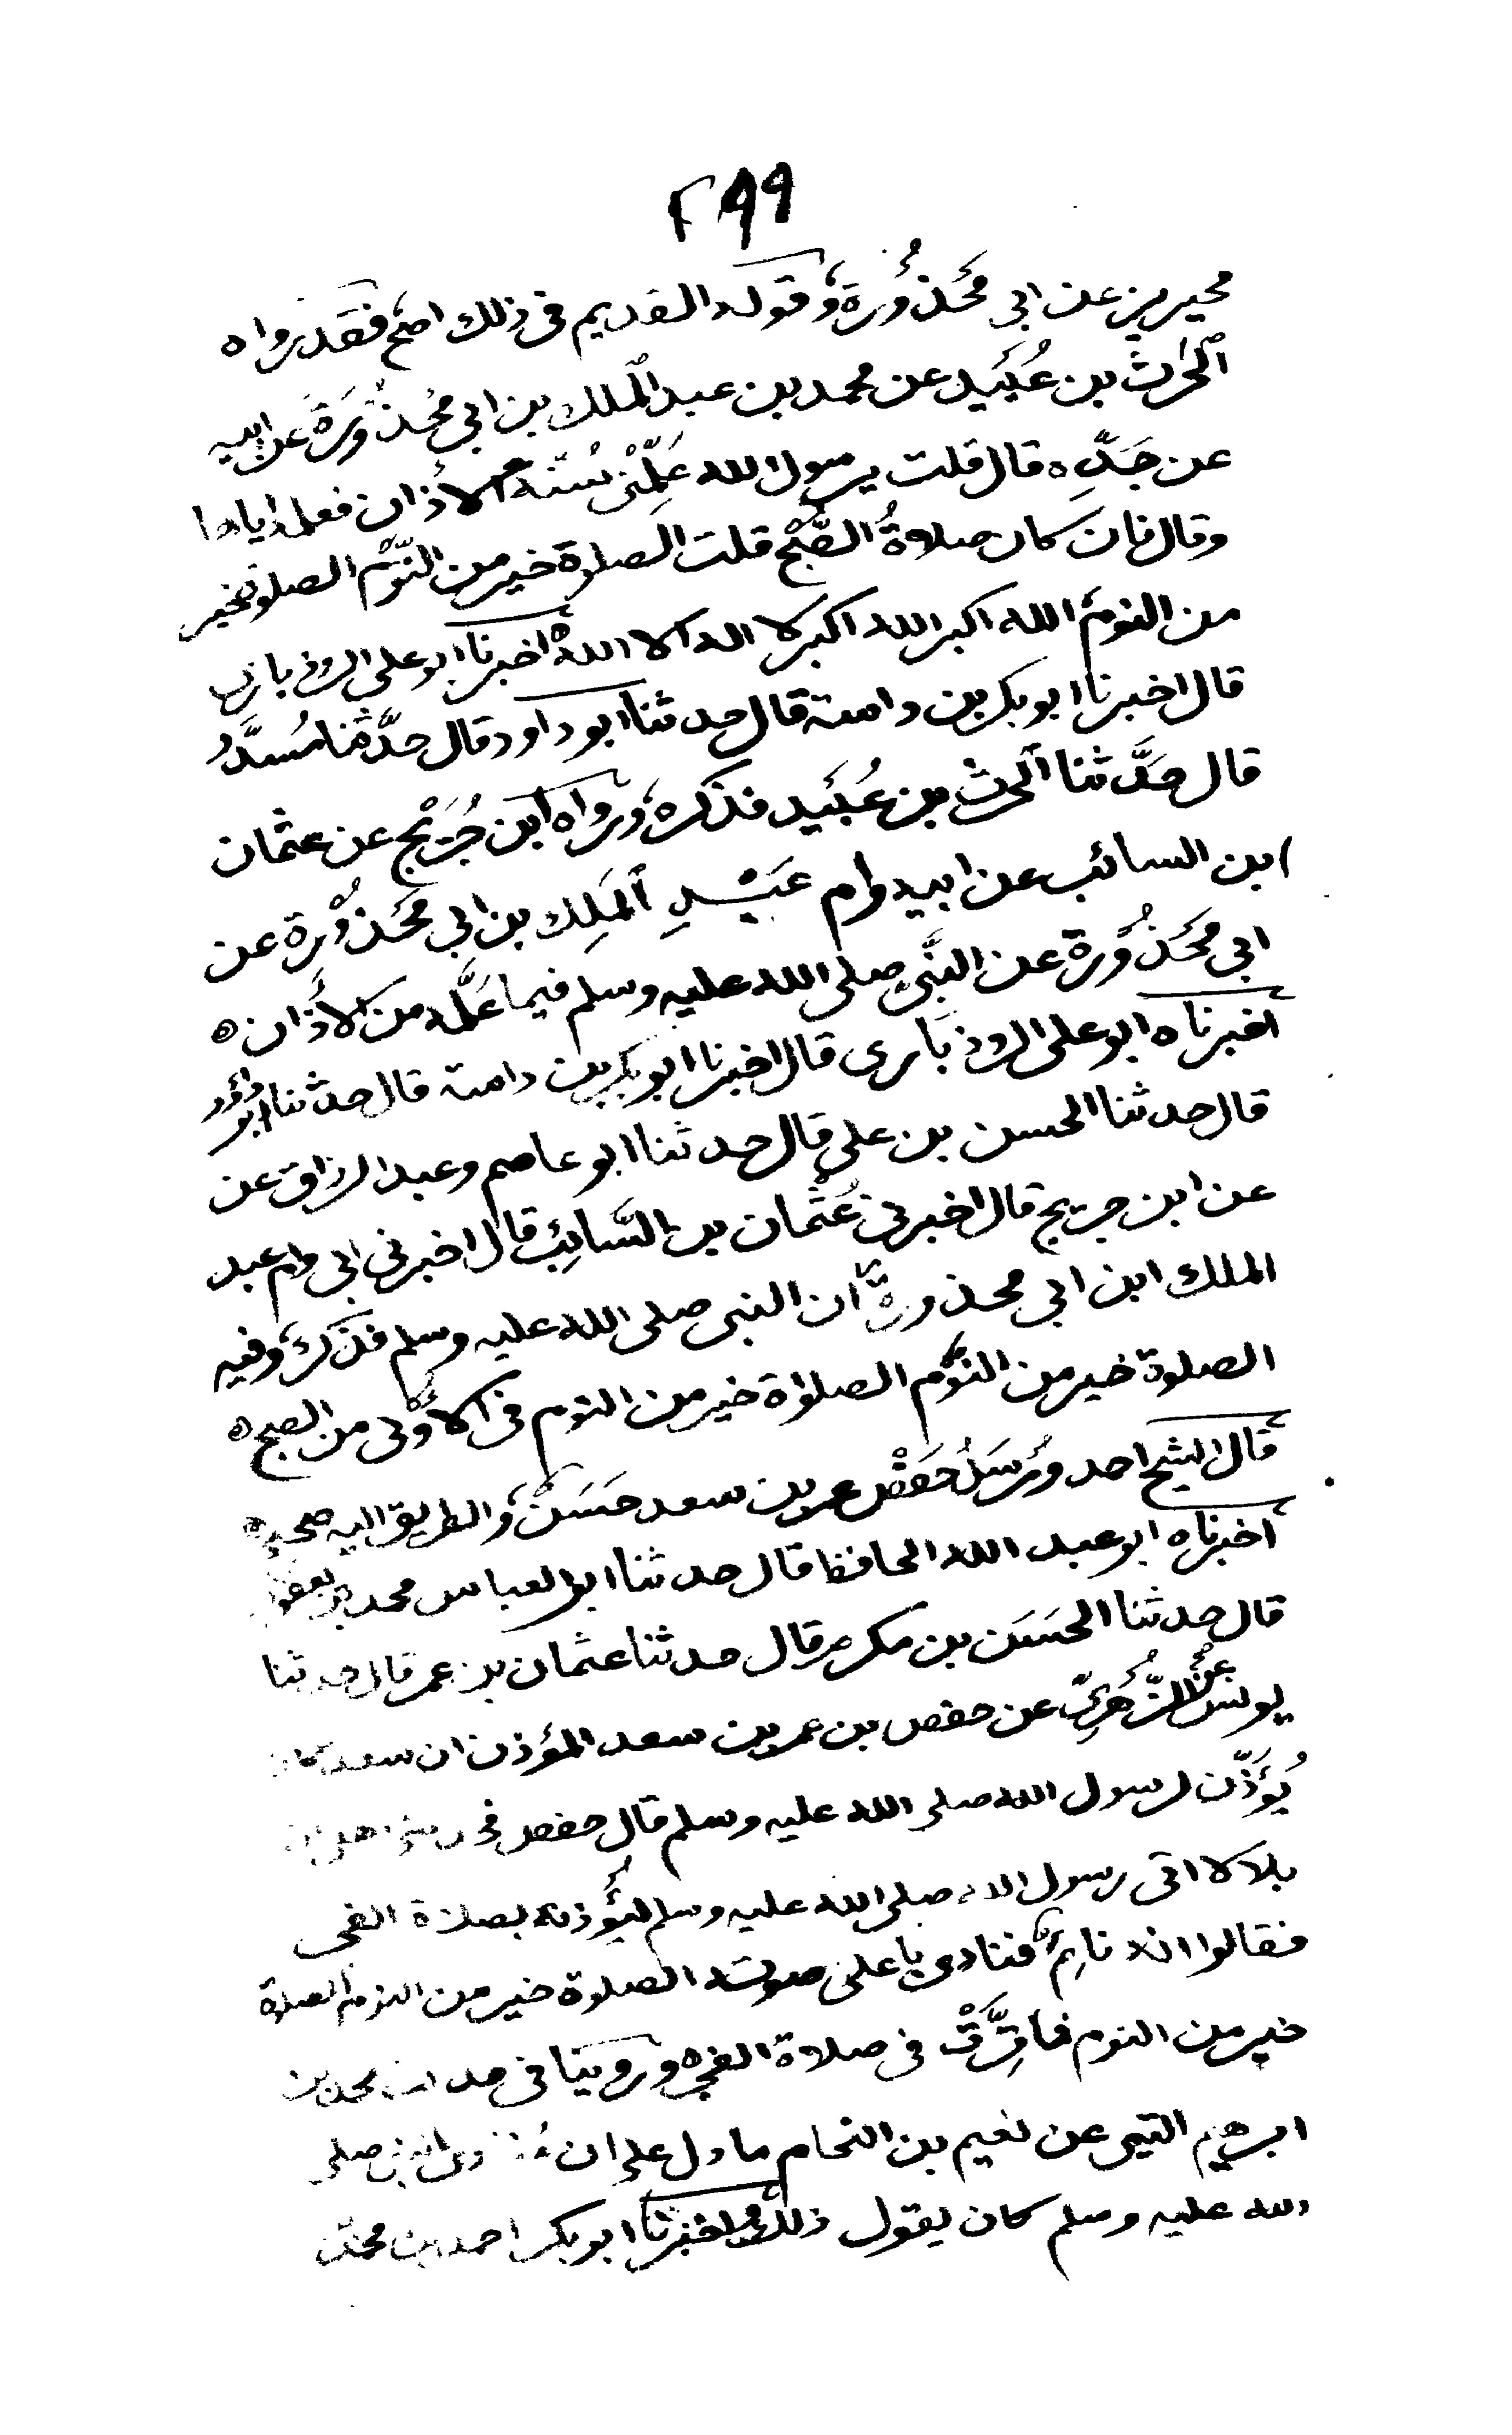 ٢٩٩
محيريز عن ابي مَحْذُورة، وقوله القديم في ذلك اصح فقد رواه
الحرث بن عُبَيد عن محمد بن عبد الملك بن ابي مَحْذُورَة عن ابيه
عن جَدِّه قال قلت يرسول الله عَلِّمْنِي سُنّة الاذان فعلمه اياها
وقال فان كان صلاةُ الصُّبْح قلت الصلوة خير من النَّوْم الصلوة خير
من النوم الله اكبر الله اكبر لا اله الا الله ه اخبرنا ابو علي الروذباري
قال اخبرنا ابو بكر بن داسة قال حدثنا ابو داود قال حدَّثنا مُسَدَّد
قال حدَّثنا الحرث بن عُبَيد فذكره، ورواه ابن جُرَيْج عن عثمان
ابن السائب عن ابيه وام عَبْدِ المَلِك بن ابي مَحْذُورة عن
ابي مَحْذُورة عن النَّبي صلى الله عليه وسلم فيما عَلَّمه من الأذان ه
اخبرناه ابو على الروذباري قال اخبرنا ابو بكر بن داسة قال حدثنا ابو داود
قال حدثنا الحسن بن علي قال حدثنا ابو عاصم وعبد الرزاق عن
عن ابن جريج قال اخبرني عُثْمان بن السَّائِب قال اخبرني ابي وام عبد
الملك ابن ابي محذورة ان النبى صلى الله عليه وسلم فذكره، وفيه
الصلوة خير من النَّوْم الصلواة خير من النوم في الاُوْلى من الصبح ه
قال الشيخ احمد ومُرْسَلُ حَفْص عمر بن سعد حَسَنٌ، والطريق اليه صحيح ه
اخبرناه ابو عبد الله الحافظ قال حدثنا ابو العباس محمد بن يعقوب
قال حدثنا الحَسَن بن مكرم قال حدثنا عثمان بن عمر قال حدثنا
يونس عن الزُّهْرِيّ عن حفص بن عمر بن سعد المؤذن ان سعدا كان
يُؤَذّن لرسول الله صلى الله عليه وسلم قال حفص
بلالا اتى رسول الله صلى الله عليه وسلم ليُؤْذنه بصلاة الفجر
فقالوا انه نائِمٌ فنادى باعلى صوته الصلوة خير من النوم الصلوة
خير من النوم فاقِرَّتْ في صلاة الفجر ه وروينا في حديث محمد بن
ابرهيم التيمي عن نعيم بن النحام ما دل على ان صلى
الله عليه وسلم كان يقول ذلك ه اخبرنا ابو بكر احمد بن محمد